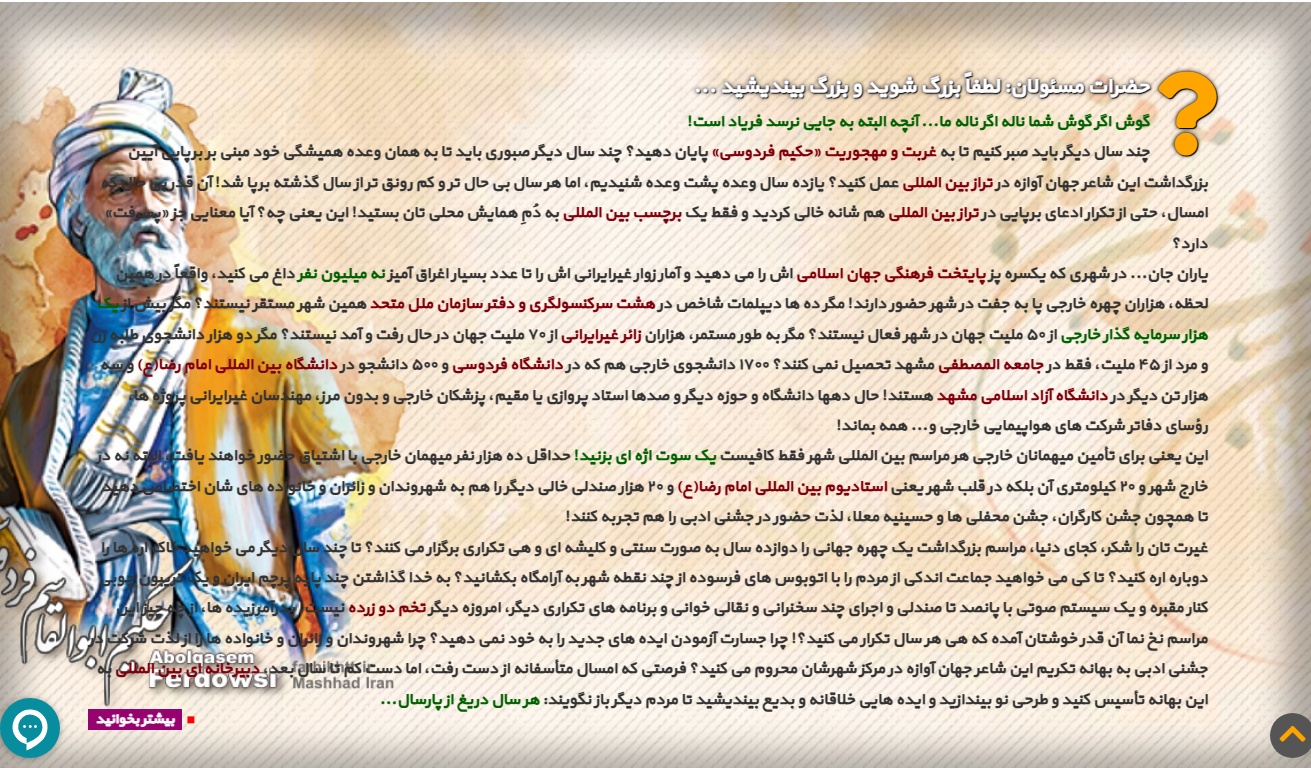 حضرات مسئولان: لطفاً بزرگ شوید و بزرگ بیندیشید ...
گوش اگر گوش شما ناله اگر ناله ما... آنچه البته به جایی نرسد فریاد است!
چند سال دیگر باید صبر کنیم تا به غربت و مهجوریت «حکیم فردوسی» پایان دهید؟ چند سال دیگر صبوری باید تا به همان وعده همیشگی خود مبنی بر برپایی آیین
بزرگداشت این شاعر جهان آوازه در تراز بین المللی عمل کنید؟ یازده سال وعده پشت وعده شنیدیم، اما هر سال بی حال تر و کم رونق تر از سال گذشته برپا شد! آن قدر بی حال که
امسال، حتی از تکرار ادعای برپایی در تراز بین المللی هم شانه خالی کردید و فقط یک برچسب بین المللی به دُمِ همایش محلی تان بستید! این یعنی چه؟ آیا معنایی جز «پسرفت»
دارد؟
یاران جان... در شهری که یکسره پز پایتخت فرهنگی جهان اسلامی اش را می دهید و آمار زوار غیرایرانی اش را تا عدد بسیار اغراق آمیز نه میلیون نفر داغ می کنید، واقعاً در همین
لحظه، هزاران چهره خارجی پا به جفت در شهر حضور دارند! مگر ده ها دیپلمات شاخص در هشت سرکنسولگری و دفتر سازمان ملل متحد همین شهر مستقر نیستند؟ مگر بیش از یک
هزار سرمایه گذار خارجی از ۵۰ ملیت جهان در شهر فعال نیستند؟ مگر به طور مستمر، هزاران زائر غیرایرانی از ۷۰ ملیت جهان در حال رفت و آمد نیستند؟ مگر دو هزار دانشجوی طلبه زن
و مرد از ۴۵ ملیت، فقط در جامعه المصطفی مشهد تحصیل نمی کنند؟ ۱۷۰۰ دانشجوی خارجی هم که در دانشگاه فردوسی و ۵۰۰ دانشجو در دانشگاه بین المللی امام رضا(ع) و سه
هزار تن دیگر در دانشگاه آزاد اسلامی مشهد هستند! حال دهها دانشگاه و حوزه دیگر و صدها استاد پروازی یا مقیم، پزشکان خارجی و بدون مرز، مهندسان غیرایرانی پروژه ها،
رؤسای دفاتر شرکت های هواپیمایی خارجی و... همه بماند!
این یعنی برای تأمین میهمانان خارجی هر مراسم بین المللی شهر فقط کافیست یک سوت اژه ای بزنید! حداقل ده هزار نفر میهمان خارجی با اشتیاق حضور خواهند یافت، البته نه در
خارج شهر و ۲۰ کیلومتری آن بلکه در قلب شهر یعنی استادیوم بین المللی امام رضا(ع) و ۲۰ هزار صندلی خالی دیگر را هم به شهروندان و زائران و خانواده های شان اختصاص دهید
تا همچون جشن کارگران، جشن محفلی ها و حسینیه معلا، لذت حضور در جشنی ادبی را هم تجربه کنند!
غیرت تان را شکر، کجای دنیا، مراسم بزرگداشت یک چهره جهانی را دوازده سال به صورت سنتی و کلیشه ای و هی تکراری برگزار می کنند؟ تا چند سال دیگر می خواهید خاک اره ها را
دوباره اره کنید؟ تا کی می خواهید جماعت اندکی از مردم را با اتوبوس های فرسوده از چند نقطه شهر به آرامگاه بکشانید؟ به خدا گذاشتن چند پایه پرچم ایران و یک تریبون چوبی
کنار مقبره و یک سیستم صوتی با پانصد تا صندلی و اجرای چند سخنرانی و نقالی خوانی و برنامه های تکراری دیگر، امروزه دیگر تخم دو زرده نیست! پدرآمرزیده ها، از چه چیز این
مراسم نخ نما آن قدر خوشتان آمده که هی هر سال تکرار می کنید؟! چرا جسارت آزمودن ایده های جدید را به خود نمی دهید؟ چرا شهروندان و زائران و خانواده ها را از لذت شرکت در
جشنی ادبی به بهانه تکریم این شاعر جهان آوازه در مرکز شهرشان محروم می کنید؟ فرصتی که امسال متأسفانه از دست رفت، اما دست کم تا سال بعد، دبیرخانه ای بین المللی به
این بهانه تأسیس کنید و طرحی نو بیندازید و ایده هایی خلاقانه و بدیع بیندیشید تا مردم دیگر باز نگویند: هر سال دریغ از پارسال...
حکیم ابوالقاسم فردوسی
Abolqasem
Ferdowsi
Mashhad Iran
بیشتر بخوانید